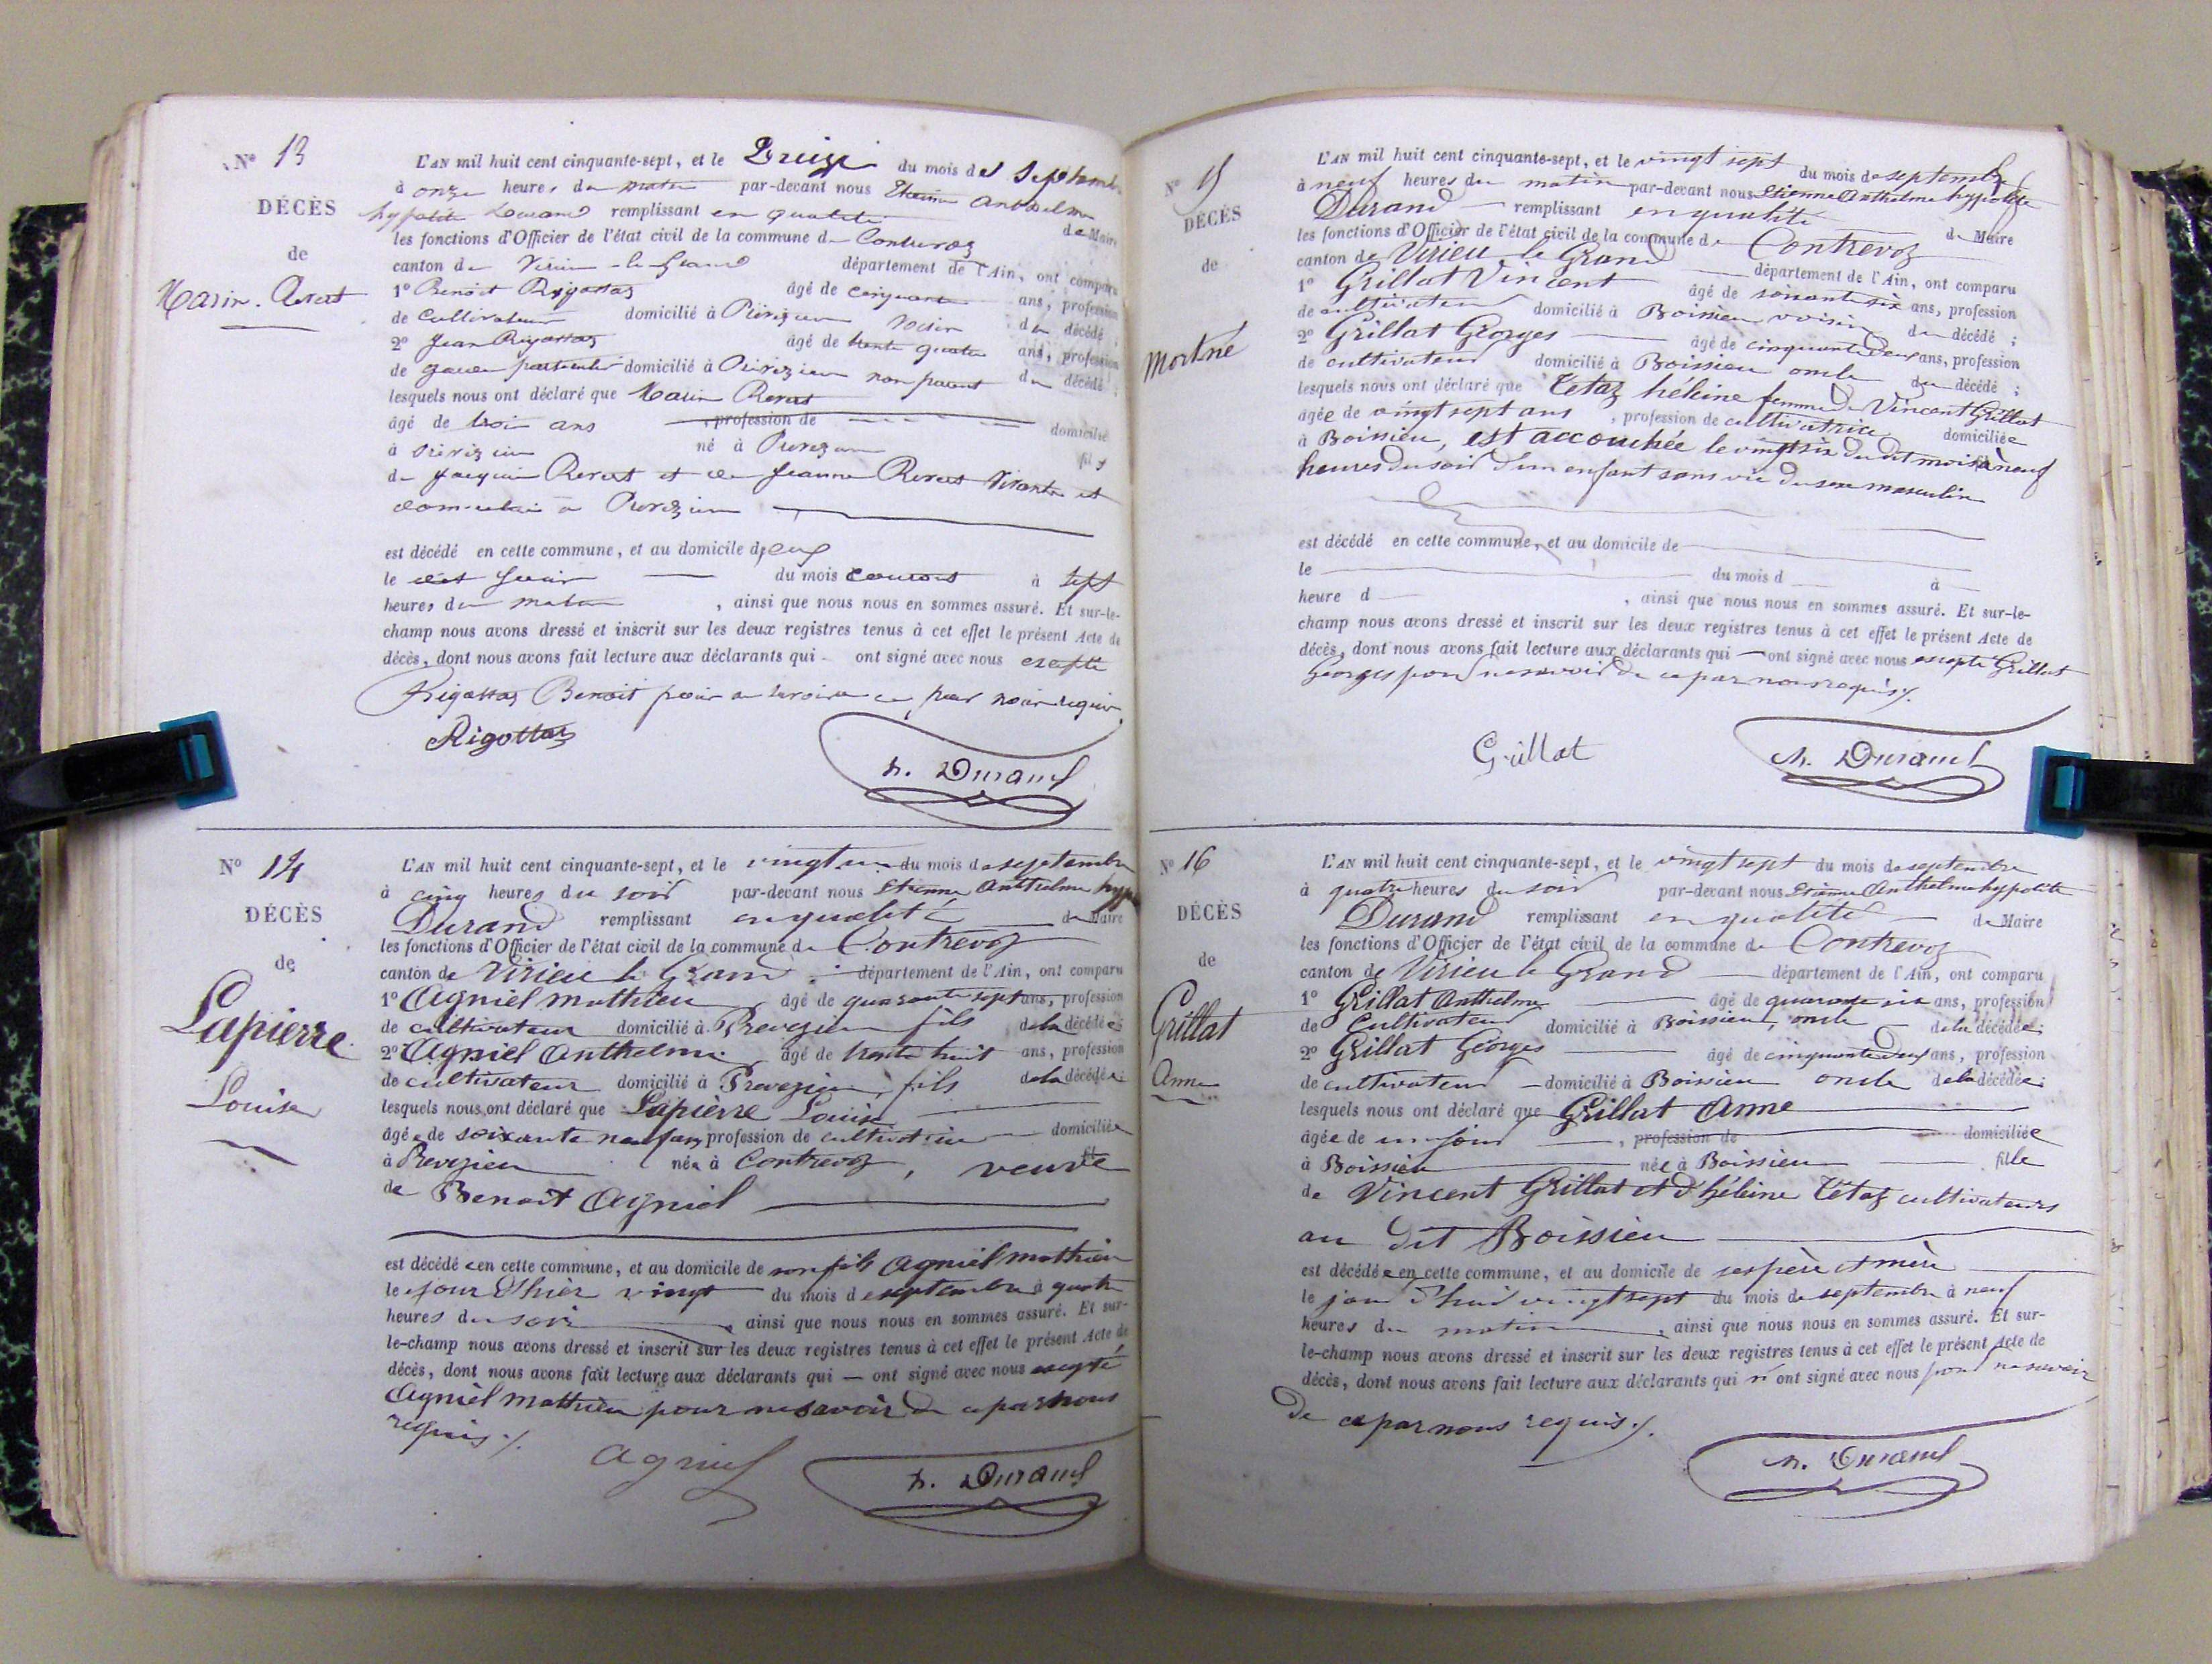 N° 13
DÉCÈS
de
L'AN mil huit cent cinquante-sept, et le Treize du mois de Septembre
à onze heures du matin par-devant nous Etienne Anthelme
hypolite Durand remplissant en qualité de Maire
les fonctions d'Officier de l'état civil de la commune de Contrevoz
canton de Virieu-le-Grand département de l'Ain, ont comparu
1° Benoit Rigottaz âgé de cinquante ans, profession
de Cultivateur domicilié à voisin du décédé ;
2° Jean Rigottaz âgé de trente quatre ans, profession
de garde particulier domicilié à non parent du décédé ;
lesquels nous ont déclaré que
âgé de trois ans , profession de domicilié
à né à fils
de et de Jeanne et
à
est décédé en cette commune, et au domicile d'eux
le dit jour du mois courant à sept
heures du matin , ainsi que nous nous en sommes assuré. Et sur-le-
champ nous avons dressé et inscrit sur les deux registres tenus à cet effet le présent Acte de
décès, dont nous avons fait lecture aux déclarants qui ont signé avec nous excepté
Rigottaz Benoit pour ne savoir de ce par nous requis
Rigottaz
h. Durand
N° 14
DÉCÈS
de
Lapierre
Louise
L'AN mil huit cent cinquante-sept, et le vingt un du mois de septembre
à cinq heures du soir par-devant nous Etienne Anthelme hypo
Durand remplissant en qualité de Maire
les fonctions d'Officier de l'état civil de la commune de Contrevoz
canton de Virieu le Grand département de l'Ain, ont comparu
1° Agniel mathieu âgé de quarante sept ans, profession
de cultivateur domicilié à Prevezieu fils de la décédée
2° Agniel Anthelme âgé de trente huit ans, profession
de cultivateur domicilié à Prevezieu, fils de la décédée
lesquels nous ont déclaré que Lapierre Louise
âgée de soixante neuf ans, profession de cultivatrice domiciliée
à Prevezieu née à Contrevoz, veuve
de Benoit Agniel
est décédée en cette commune, et au domicile de son fils Agniel mathieu
le jour d'hier vingt du mois de septembre à quatre
heures du soir , ainsi que nous nous en sommes assuré. Et sur-
le-champ nous avons dressé et inscrit sur les deux registres tenus à cet effet le présent Acte de
décès, dont nous avons fait lecture aux déclarants qui — ont signé avec nous excepté
Agniel mathieu pour ne savoir de ce par nous
requis ./.
agniel
h. Durand
N° 15
DÉCÈS
de
mortné
L'AN mil huit cent cinquante-sept, et le vingt sept du mois de septembre
à neuf heures du matin par-devant nous Etienne Anthelme hypolite
Durand remplissant en qualité de Maire
les fonctions d'Officier de l'état civil de la commune de Contrevoz
canton de Virieu le Grand département de l'Ain, ont comparu
1° Grillat Vincent âgé de soixante six ans, profession
de cultivateur domicilié à Boissieu voisin du décédé ;
2° Grillat Georges âgé de cinquante deux ans, profession
de cultivateur domicilié à Boissieu oncle du décédé ;
lesquels nous ont déclaré que Tetaz hélène femme de Vincent Grillat
âgée de vingt sept ans , profession de cultivatrice domiciliée
à Boissieu, est accouchée le vingt six du dit mois à neuf
heures du soir d'un enfant sans vie du sexe masculin
est décédé en cette commune, et au domicile de
le du mois d à
heure d , ainsi que nous nous en sommes assuré. Et sur-le-
champ nous avons dressé et inscrit sur les deux registres tenus à cet effet le présent Acte de
décès, dont nous avons fait lecture aux déclarants qui — ont signé avec nous excepté Grillat
Georges pour ne savoir de ce par nous requis ./.
Grillat
h. Durand
N° 16
DÉCÈS
de
Grillat
Anne
L'AN mil huit cent cinquante-sept, et le vingt sept du mois de septembre
à quatre heures du soir par-devant nous Etienne Anthelme hypolite
Durand remplissant en qualité de Maire
les fonctions d'Officier de l'état civil de la commune de Contrevoz
canton de Virieu le Grand département de l'Ain, ont comparu
1° Grillat Anthelme âgé de quarante six ans, profession
de Cultivateur domicilié à Boissieu, oncle de la décédée ;
2° Grillat Georges âgé de cinquante deux ans, profession
de cultivateur domicilié à Boissieu oncle de la décédée ;
lesquels nous ont déclaré que Grillat Anne
âgée de un jour , profession de domiciliée
à Boissieu née à Boissieu fille
de Vincent Grillat et d'hélène Tetaz cultivateurs
au dit Boissieu
est décédée en cette commune, et au domicile de ses père et mère
le jour d'hui vingt sept du mois de septembre à neuf
heures du matin , ainsi que nous nous en sommes assuré. Et sur-
le-champ nous avons dressé et inscrit sur les deux registres tenus à cet effet le présent Acte de
décès, dont nous avons fait lecture aux déclarants qui n'ont signé avec nous pour ne savoir
de ce par nous requis ./.
h. Durand